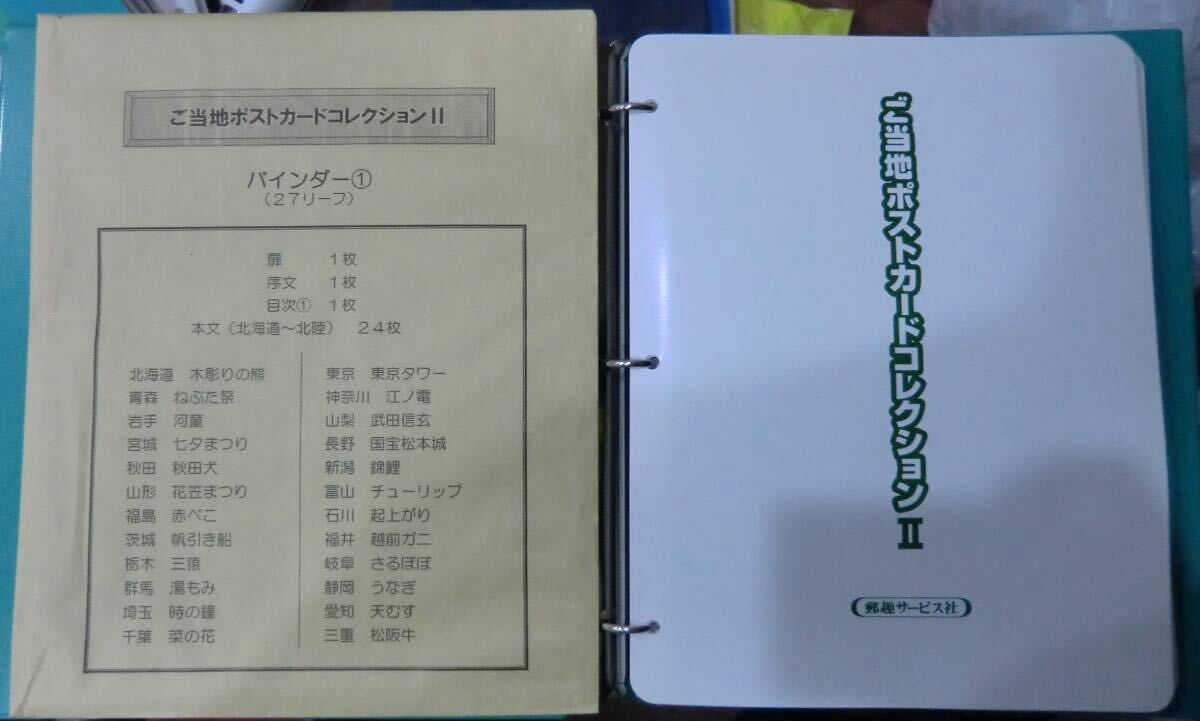 ご当地ポストカードコレクションⅡ
バインダー①
(27リーフ)
扉 1枚
序文 1枚
目次① 1枚
本文(北海道～北陸) 24枚
北海道 木彫りの熊
青森 ねぶた祭
岩手 河童
宮城 七夕まつり
秋田 秋田犬
山形 花笠まつり
福島 赤べこ
茨城 帆引き船
栃木 三猿
群馬 湯もみ
埼玉 時の鐘
千葉 菜の花
東京 東京タワー
神奈川 江ノ電
山梨 武田信玄
長野 国宝松本城
新潟 錦鯉
富山 チューリップ
石川 起上がり
福井 越前ガニ
岐阜 さるぼぼ
静岡 うなぎ
愛知 天むす
三重 松阪牛
ご当地ポストカードコレクションⅡ
郵趣サービス社